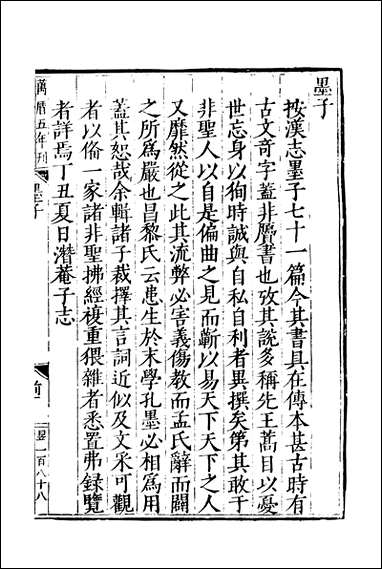 墨子
按漢志墨子七十一篇今其書具在傳本甚古時有
古文奇字蓋非贗書也攷其説多稱先王蒿目以憂
世忘身以狥時誠與自私自利者異撰矣第其敢于
非聖人以自是偏曲之見而蘄以易天下天下之人
又靡然從之此其流弊必害義傷教而孟氏辭而闢
之所為嚴也昌黎氏云患生於末學孔墨必相為用
蓋其恕哉余輯諸子裁擇其言詞近似及文采可觀
者以俻一家諸非聖拂經複重猥雜者悉置弗録覽
者詳焉丁丑夏日潛菴子志
萬曆五年刊
墨子
前
墨一百八十八